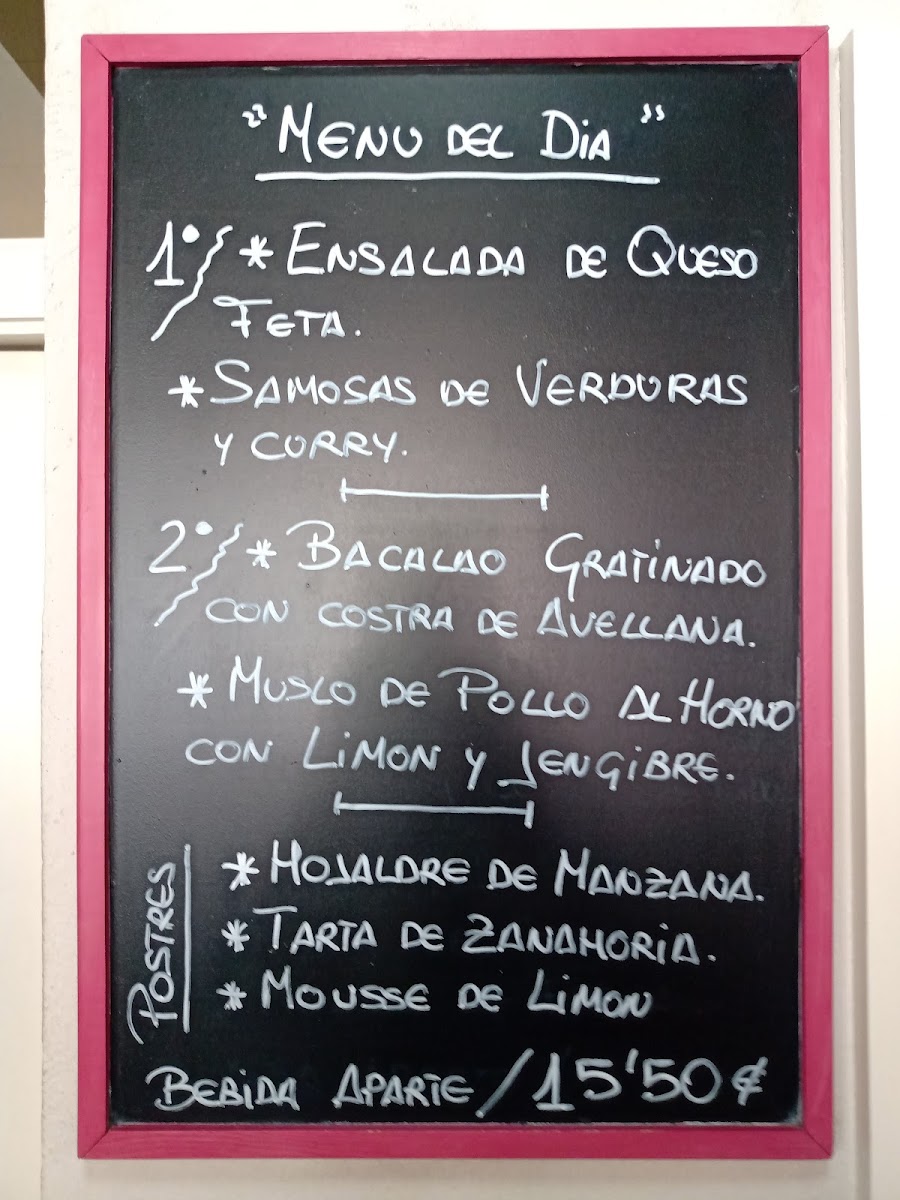 "MENU DEL DIA"
1º * ENSALADA DE QUESO
FETA.
* SAMOSAS DE VERDURAS
Y CURRY.
2º * BACALAO GRATINADO
CON COSTRA DE AVELLANA.
* MUSLO DE POLLO AL HORNO
CON LIMON Y JENGIBRE.
POSTRES
* HOJALDRE DE MANZANA.
* TARTA DE ZANAHORIA.
* MOUSSE DE LIMON
BEBIDA APARTE / 15'50 €